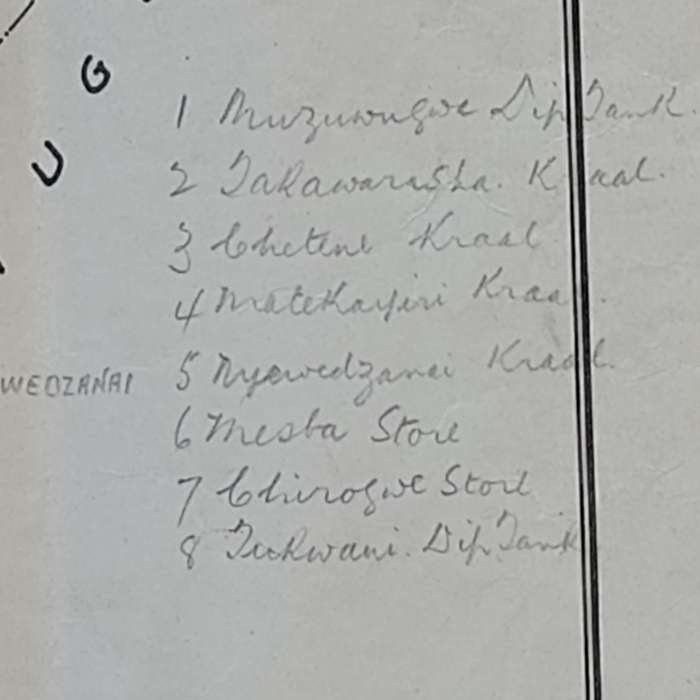 G
U
1 Muzuwugwe Dip Tank.
2 Takawarasha. Kraal.
3 Chetene Kraal
4 Kraal.
WEDZANAI
5 Nyewedzanai Kraal.
6 Mesba Store
7 Chirogwe Store
8 Tukwani. Dip Tank